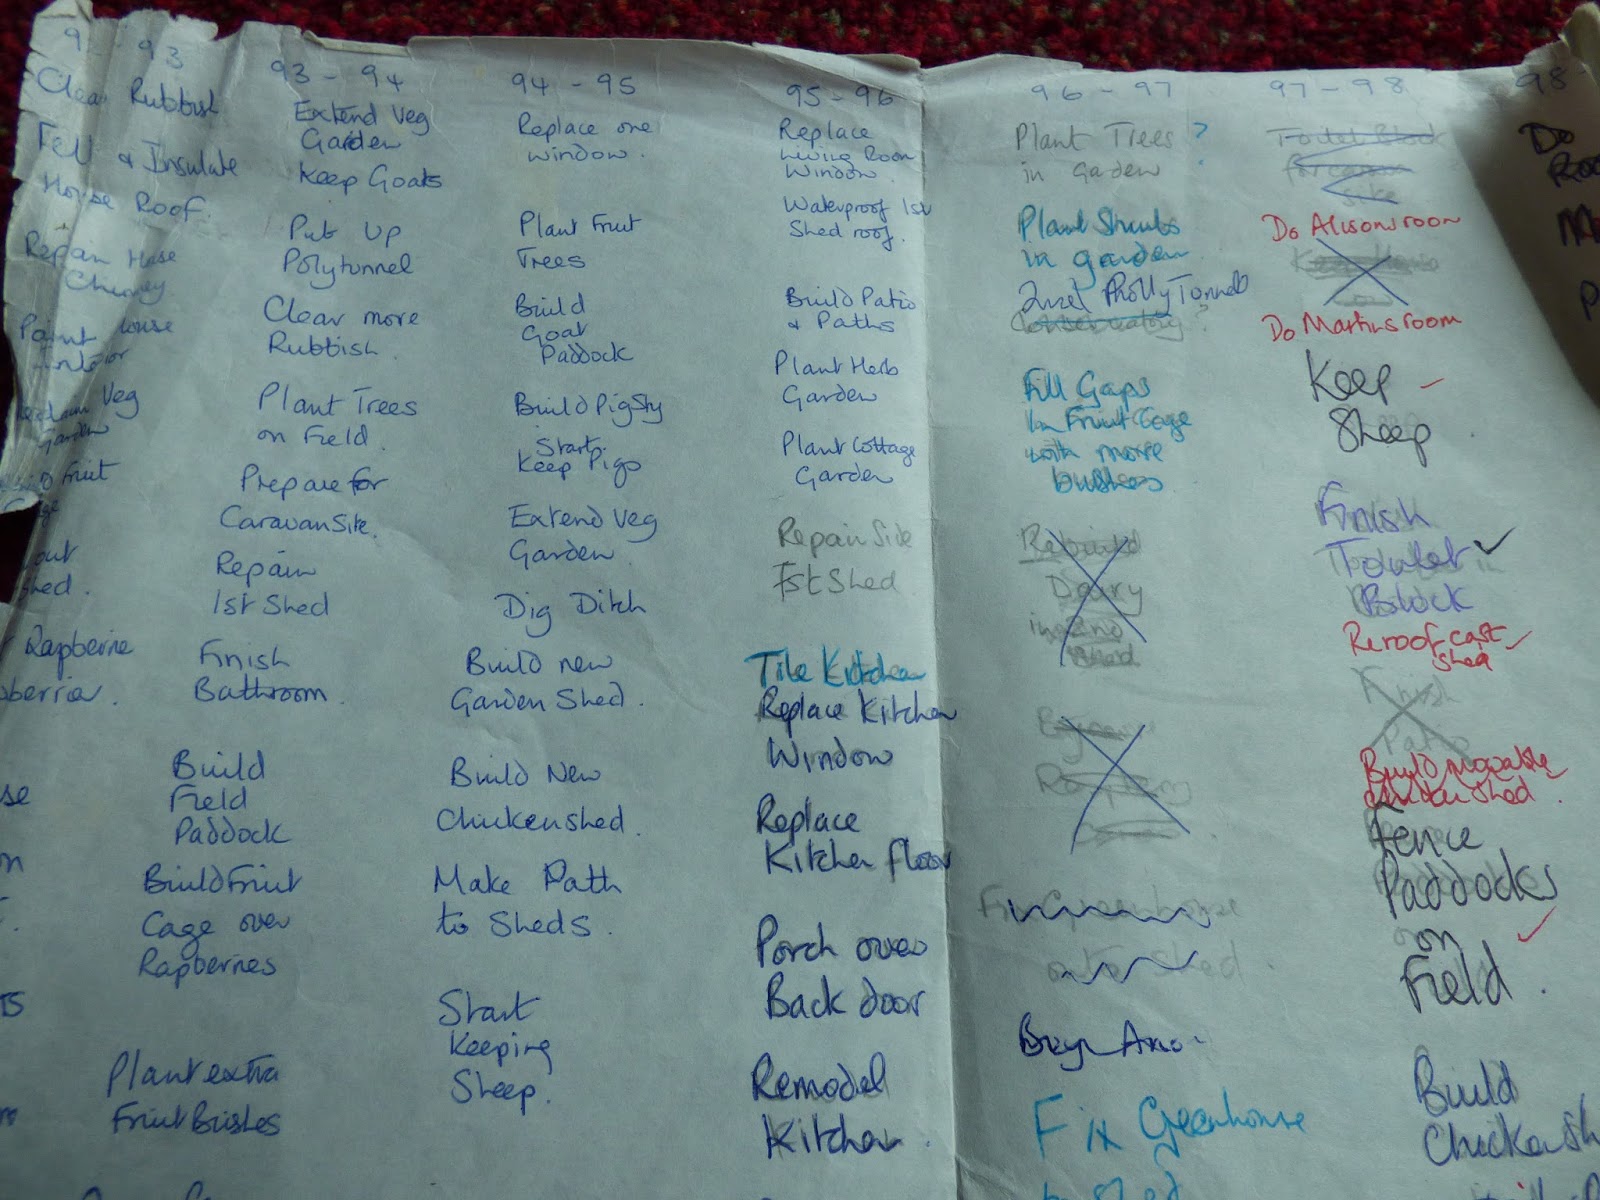 93
Clear Rubbish
Felt & Insulate
House Roof.
Repair Hose
Chimney
Paint house
Veg
Garden
Fruit
out
shed.
Rapberrie
93 - 94
Extend Veg
Garden
Keep Goats
Put Up
Polytunnel
Clear more
Rubbish.
Plant Trees
on Field.
Prepare for
Caravan Site.
Repair
1st Shed
Finish
Bathroom.
Build
Field
Paddock
Build Fruit
Cage over
Rapberries
Plant extra
Fruit Bushes
94 - 95
Replace one
window.
Plant Fruit
Trees
Build
Goat
Paddock
Build Pig Sty
Start
Keep Pigs
Extend Veg
Garden
Dig Ditch
Build new
Garden Shed.
Build New
Chickenshed.
Make Path
to Sheds.
Start
Keeping
Sheep.
95 - 96
Replace
Living Room
Window.
Waterproof 1st
Shed roof.
Build Patio
& Paths
Plant Herb
Garden
Plant Cottage
Garden
Repair Side
1st Shed
Tile Kitchen
Replace Kitchen
Window
Replace
Kitchen floor
Porch over
Back door
Remodel
Kitchen.
96 - 97
Plant Trees ?
in Garden
Plant Shrubs
in garden
Polly Tonnel
Conservatory ?
Fill Gaps
In Fruit Cage
with more
bushes
Rebuild
Dairy
Fix Greenhouse
onto Shed.
Fix Greenhouse
Shed
97 - 98
Toilet Block
Do Alisons room
Do Martins room
Keep
Sheep
Finish
Toilet
Block
Reroof cast
shed
Finish
Patio
Build movable
chicken shed.
Fence
Paddocks
on
Field.
Build
98
Do